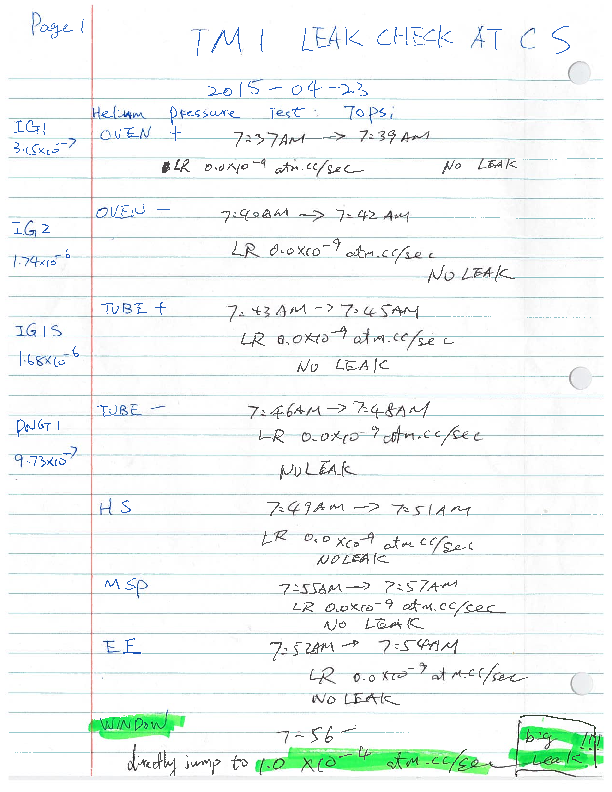 Page 1
TM1 LEAK CHECK AT CS
2015-04-23
Helium pressure Test: 70psi
IG1
3.15x10-7
OVEN + 7:37AM → 7:39AM
LR 0.0x10-9 atm.cc/sec NO LEAK
OVEN - 7:40AM → 7:42AM
IG2
1.74x10-6
LR 0.0x10-9 atm.cc/sec
NO LEAK
TUBE + 7:43AM → 7:45AM
IG1S
1.68x10-6
LR 0.0x10-9 atm.cc/sec
NO LEAK
TUBE - 7:46AM → 7:48AM
PNGT1
9.73x10-7
LR 0.0x10-9 atm.cc/sec
NO LEAK
HS 7:49AM → 7:51AM
LR 0.0x10-9 atm cc/sec
NO LEAK
MSP 7:55AM → 7:57AM
LR 0.0x10-9 atm.cc/sec
NO LEAK
EE 7:52AM → 7:54AM
LR 0.0x10-9 atm.cc/sec
NO LEAK
WINDOW 7:56-
directly jump to 1.0 x10-4 atm.cc/sec
big !!!
Leak